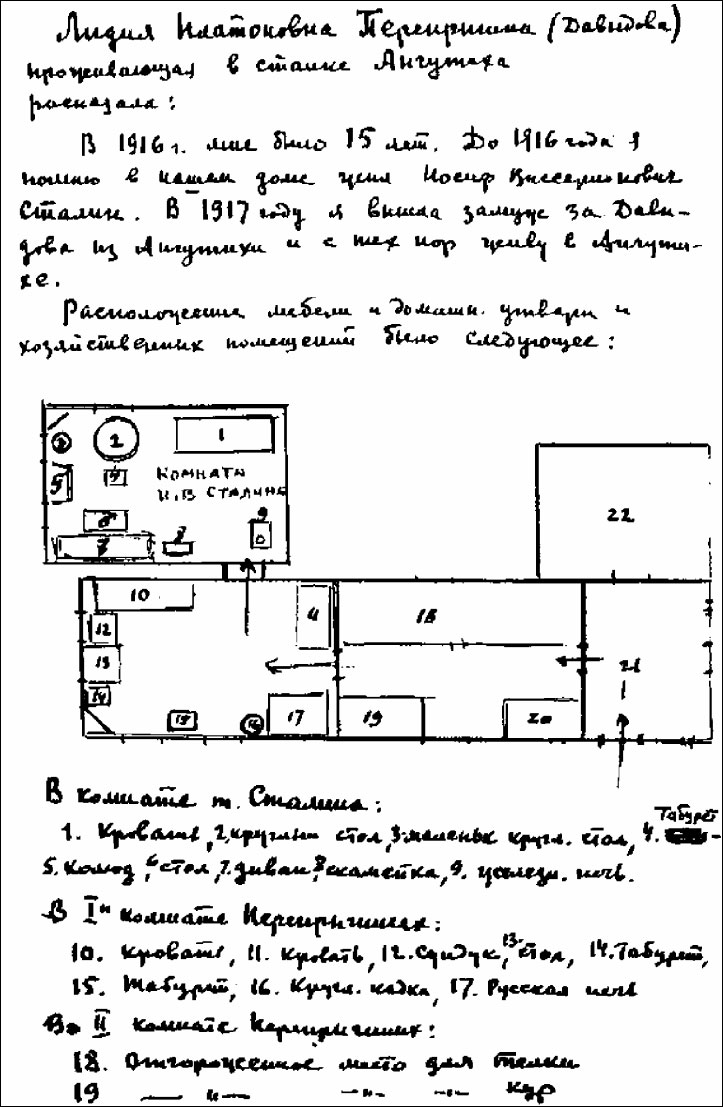 Лидия Платоновна Перепрыгина (Давыдова)
проживающая в станке Ангутиха
расказала:
В 1916 г. мне было 15 лет. До 1916 года я
помню в нашем доме жил Иосиф Виссарионович
Сталин. В 1917 году я вышла замуж за Давы-
дова из Ангутихи и с тех пор живу в Ангути-
хе.
Расположение мебели и домашн. утвари и
хозяйственных помещений было следующее:
3 2 1
5 4
Комната
И.В. Сталина
6 9
7 8
22
10
12 4 18
13
21
14
15 16 17 19 20
В комнате т. Сталина:
Табурет
1. Кровать, 2. круглый стол, 3. маленьк кругл. стол, 4. -
5. Комод, 6 стол, 7. диван, 8 скамейка, 9. железн. печь.
В I комнате Перепрыгиных:
10. Кровать, 11. Кровать, 12. Сундук, 13. стол, 14. Табурет,
15. Табурет, 16. Кругл. кадка, 17. Русская печь
Во II комнате Перепрыгиных:
18. Отгороженное место для телки
19 — " — — " — — " — кур